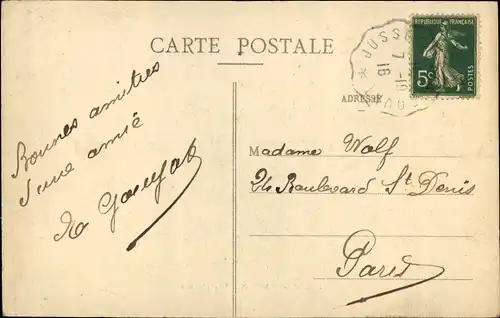 CARTE POSTALE
REPUBLIQUE FRANÇAISE
5c
POSTES
ADRESSE
Bonnes amitiés
d'une amie
Madame Wolf
24 Boulevard St Denis
Paris